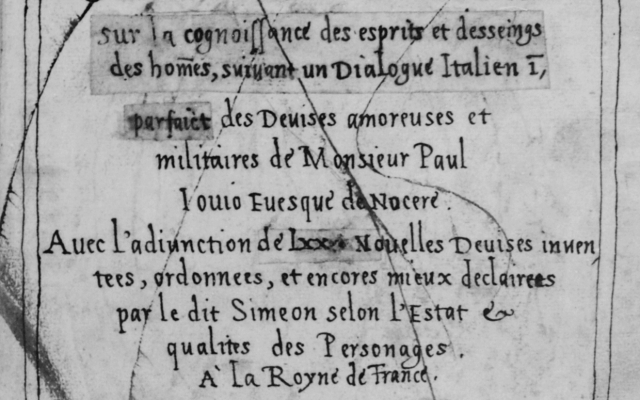 sur la cognoissance des esprits et desseings
des hom̃es, suiuant un Dialogue Italien ī,
parfaict des Deuises amoreuses et
militaires de Monsieur Paul
Iouio Euesque de Nocere.
Auec l'adiunction de Nouelles Deuises inuen
tees, ordonnees, et encores mieux declairees
par le dit Simeon selon l'Estat &
qualites des Personages.
A la Royne de France.